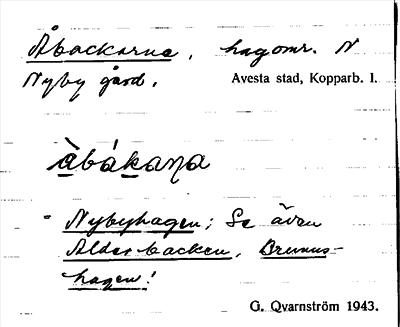 Åbackarna, hagomr. N
Nyby gård. Avesta stad, Kopparb. l.
àbákaƞa
Nybyhagen; Se även
Alderbacken, Brunns-
hagen!
G. Qvarnström 1943.